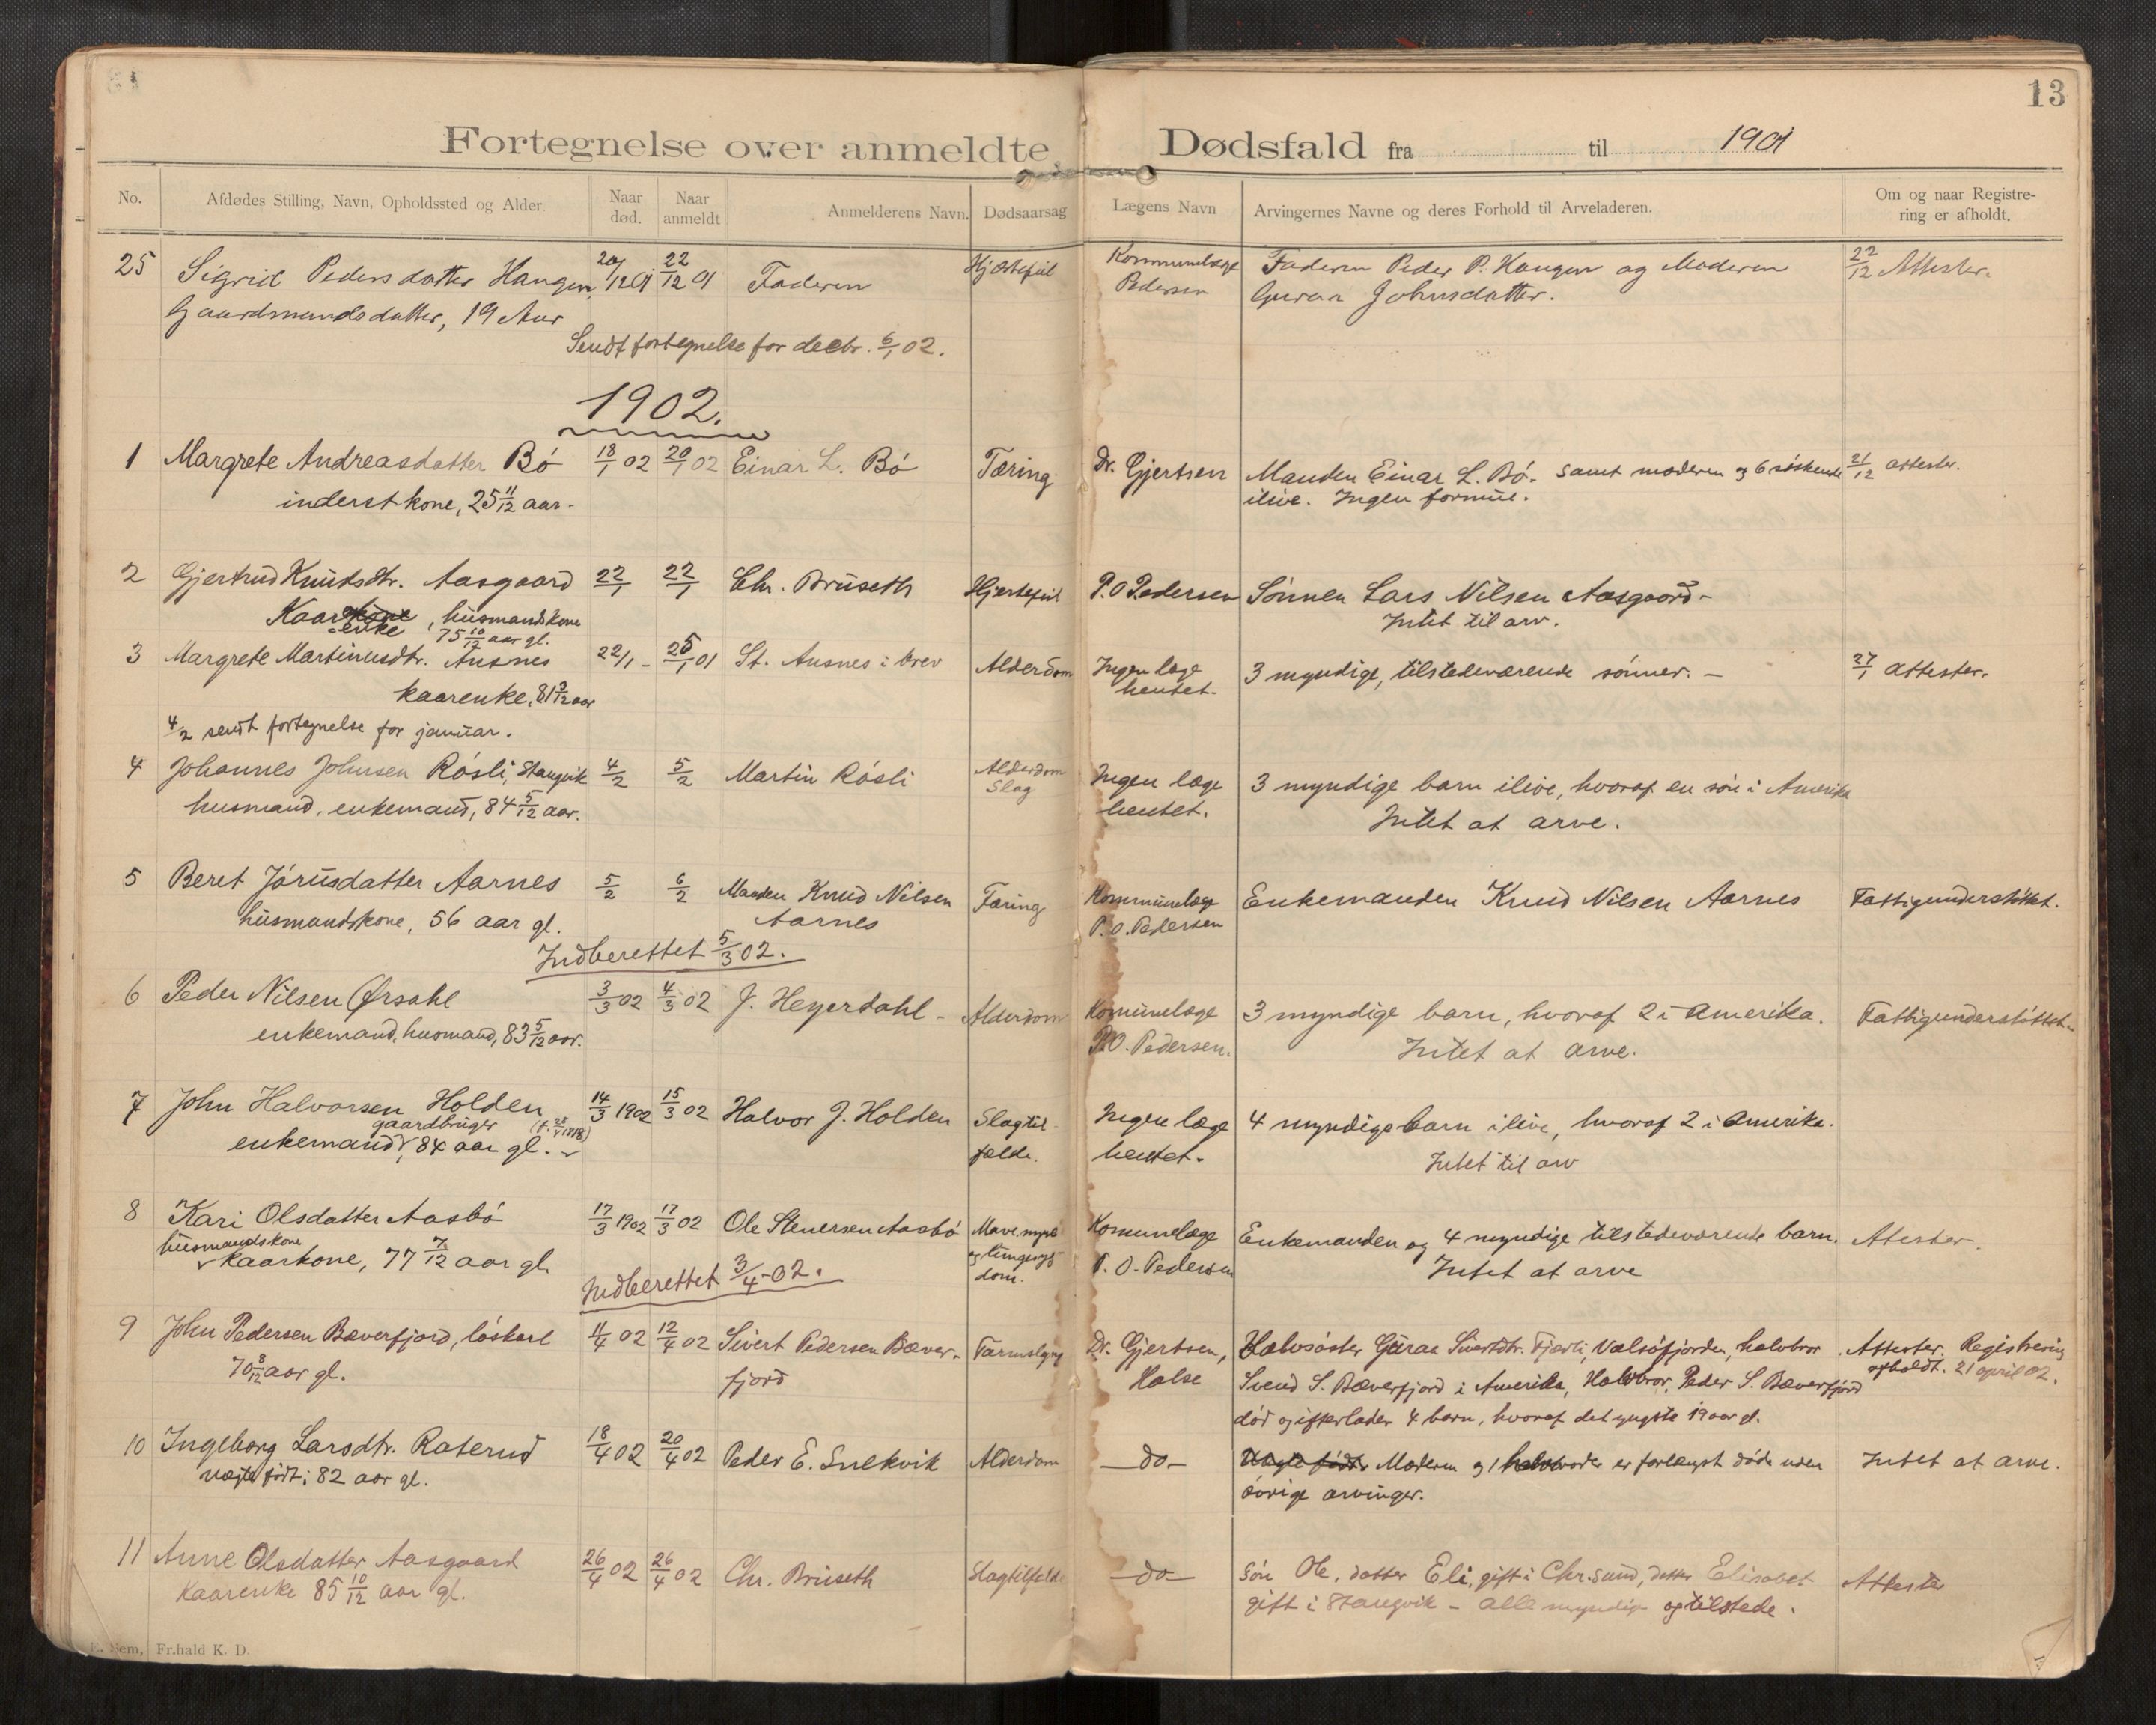 13
Fortegnelse over anmeldte Dødsfald fra til 1901
No. Afdødes Stilling, Navn, Opholdssted og Alder. Naar død. Naar anmeldt Anmelderens Navn. Dødsaarsag Lægens Navn Arvingernes Navne og deres Forhold til Arveladeren. Om og naar Registrering er afholdt.
25 Sigrid Pedersdatter Haugen 20/12 01 22/12 01 Faderen Hjertefeil Kommunelæge Faderen Peder P. Haugen og Moderen 22/12 Attester.
Gaardmandsdatter, 19 Aar Pedersen Guran Johnsdatter.
Sendt fortegnelse for decbr. 6/1 02.
1902.
1 Margrete Andreasdatter Bó 18/1 02 20/1 02 Einar L. Bó Tæring Dr. Gjertsen Manden Einar L. Bó. samt moderen og 6 søskende 21/12 attester.
inderstkone, 25 11/12 aar. ilive. Ingen formue.
2 Gjertrud Knutsdtr. Aasgaard 22/1 22/1 Chr. Brúseth Hjertefeil P.O Pedersen Sónnen Lars Nilsen Aasgaard -
Kaarkone, húsmandskone Intet til arv.
-enke 75 10/12 aar gl.
3 Margrete Martinusdtr. Ausnes 22/1 - 25/1 01 St. Ausnes i brev Alderdom Ingen læge 3 myndige, tilstedeværende sónner. - 27/1 attester.
kaarenke, 81 3/12 aar hentet.
4/2 sendt fortegnelse for januar.
4 Johannes Johnsen Rósli, Stangvik 4/2 5/2 Martin Rósli Alderdom Ingen læge 3 myndige barn ilive, hvoraf en són i Amerika
husmand, enkemand, 84 5/12 aar. Slag hentet. Intet at arve.
5 Beret Jórusdatter Aarnes 5/2 6/2 Manden Knud Nilsen Tæring Kommunelæge Enkemanden Knud Nilsen Aarnes Fattigunderstóttet.
húsmandskone, 56 aar gl. Aarnes P.O. Pedersen
Indberettet 5/3 02.
6 Peder Nilsen Ørsahl 3/3 02 4/3 02 J. Heyerdahl - Alderdom Komunelæge 3 myndige barn, hvoraf 2 i Amerika. Fattigunderstóttet.
enkemand, husmand, 83 5/12 aar. P.O. Pedersen. Intet at arve.
7 John Halvorsen Holden 14/3 1902 15/3 02 Halvor J. Holden Slagtil- Ingen læge 4 myndige barn ilive, hvoraf 2 i Amerika.
gaardbruger
enkemand, 84 aar gl. fælde. hentet. Intet til arv
8 Kari Olsdatter Aasbó 17/3 1902 17/3 02 Ole Steuersen Aasbó Komunelæge Enkemanden og 4 myndige tilstedeværende barn. Atester.
húsmandskone
kaarkone, 77 7/12 aar gl. dom. P.O. Pedersen Intet at arve
Indberettet 3/4 02.
9 John Pedersen Bæverfjord, lóskarl 11/4 02 12/4 02 Sivert Pedersen Bæver- Dr. Gjertsen, Halvsóster Guraa Sivertdtr. Fjærli, Valsófjorden, halvbror Attester. Registrering
70 8/12 aar gl. fjord Halse Svend S. Bæverfjord i Amerika, Halvbror, Peder S. Bæverfjord afholdt. 21 april 02.
dód og efterlader 4 barn, hvoraf det yngste 19 aar gl.
10 Ingeborg Larsdtr. Raterud 18/4 02 20/4 02 Peder E. Snekvik Alderdom -do- Uægte født. Moderen og 1 halvbroder er forlængst døde uden Intet at arve.
uægte født; 82 aar gl. óvrige arvinger.
11 Anne Olsdatter Aasgaard 26/4 02 26/4 02 Chr. Brúseth Slagtilfælde -do- Són Ole, datter Eli, gift i Chr.sund, datter Elisabet Attester
Kaarenke 85 10/12 aar gl. gift i Stangvik - alle myndige og tilstede.
Fr.hald K. D.